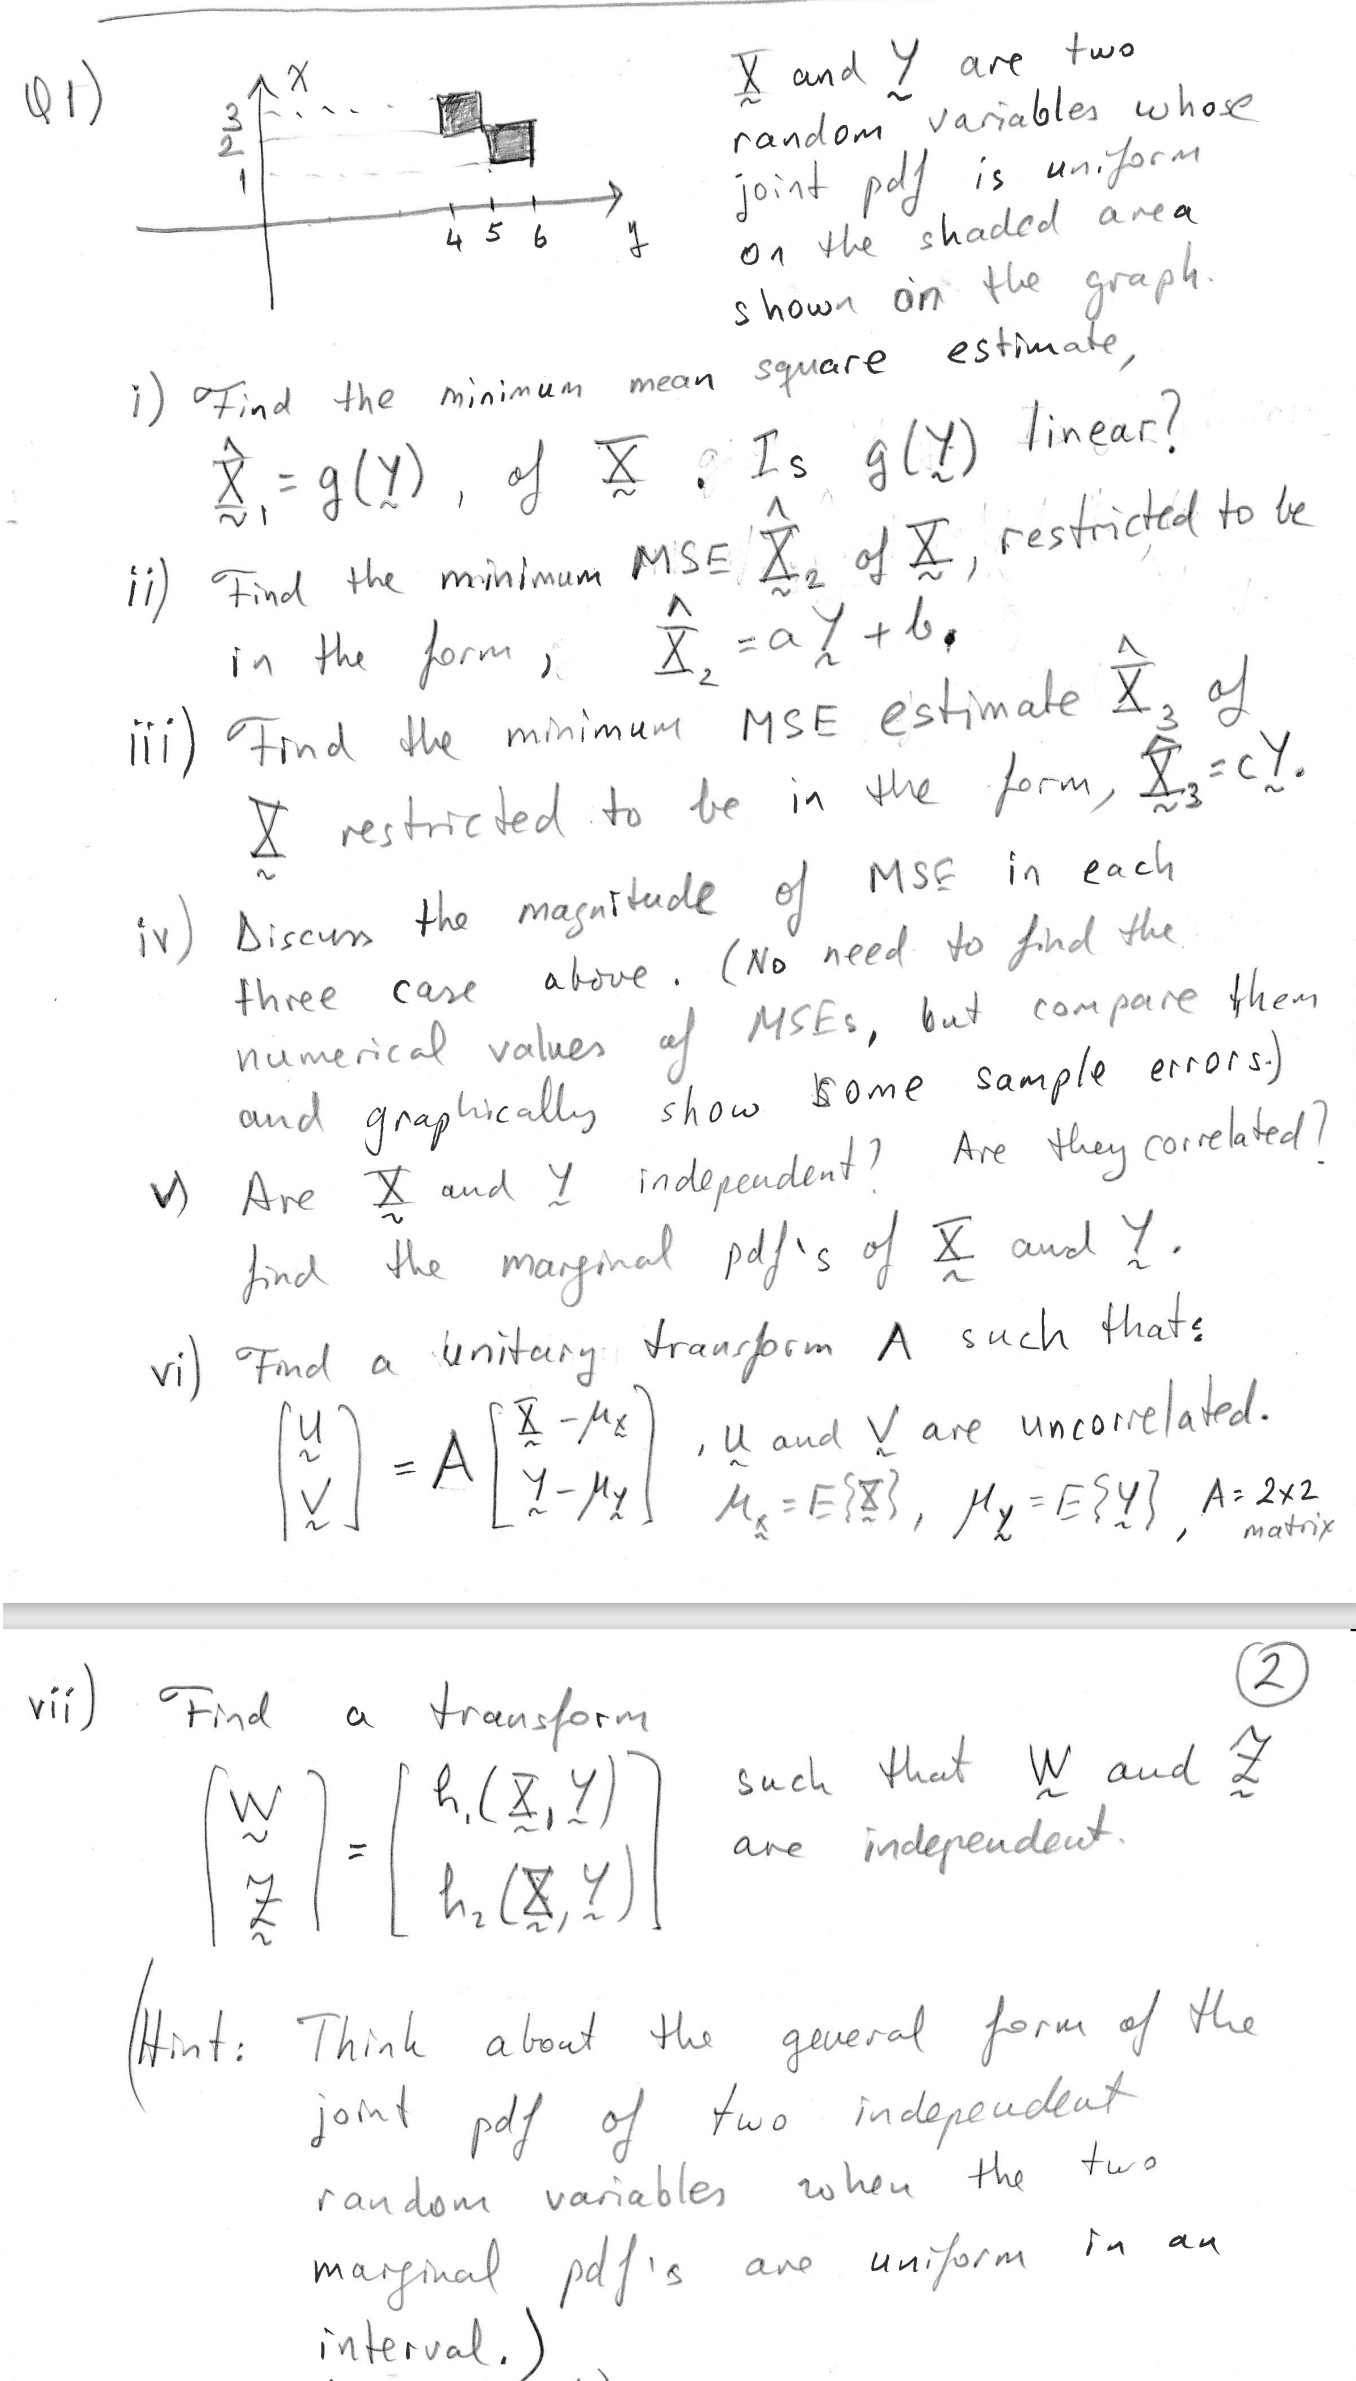 Q1)
x
3
2
1
4 5 6 y
X and Y are two
random variables whose
joint pdf is uniform
on the shaded area
shown on the graph.
i) Find the minimum mean square estimate,
X̂₁ = g(Y), of X. Is g(Y) linear?
ii) Find the minimum MSE X̂₂ of X, restricted to be
in the form, X̂₂ = aY + b.
iii) Find the minimum MSE estimate X̂₃ of
X restricted to be in the form, X̂₃ = cY.
iv) Discuss the magnitude of MSE in each
three case above. (No need to find the
numerical values of MSEs, but compare them
and graphically show some sample errors.)
v) Are X and Y independent? Are they correlated?
find the marginal pdf's of X and Y.
vi) Find a unitary transform A such that:
[U V] = A [X - μx Y - μy], U and V are uncorrelated.
μx = E{X}, μy = E{Y}, A = 2x2
matrix
2
vii) Find a transform
[W Z] = [h₁(X,Y) h₂(X,Y)] such that W and Z
are independent.
(Hint: Think about the general form of the
joint pdf of two independent
random variables when the two
marginal pdf's are uniform in an
interval.)